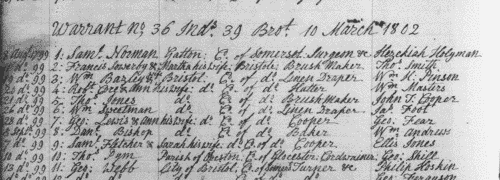 Warrant no 36 Indr. 39 Brot. 10 March 1802
99 1: Saml. Norman Co. of Somerset Surgeon & Hezekiah Holyman
do. 99 2: Francis & Martha his wife Bristol Brush Maker Thos. Smith
do. 99 3: Wm. Bazley Bristol Co. of do. Linen Draper Wm. K. Pinson
do. 99 4: Robt. & Ann his wife do. Co. of do. Hatter Wm. Masters
do. 99 5: Thos. Jones do. Co. of do. Brush Maker John T. Cooper
do. 99 6: Wm. Sweetman do. Co. of do. Linen Draper Jas. Foot
do. 99 7: Geo: Lewis & Ann his wife do. Co. of do. Cooper Geo: Fear
Sepr. 99 8: Danl. Bishop do. Co. of do. Baker Wm. Andrews
7 do. 99 9: Saml. Fletcher & Sarah his wife do. Co. of do. Cooper Ellis Jones
10 do. 99 10: Thos. Pym Parish of Co. of Glocester Cordwainer Geo: Shill
13 do. 99 11: Geo: Webb City of Bristol Co. of Turner &c. Philip Hoskin
Ferguson